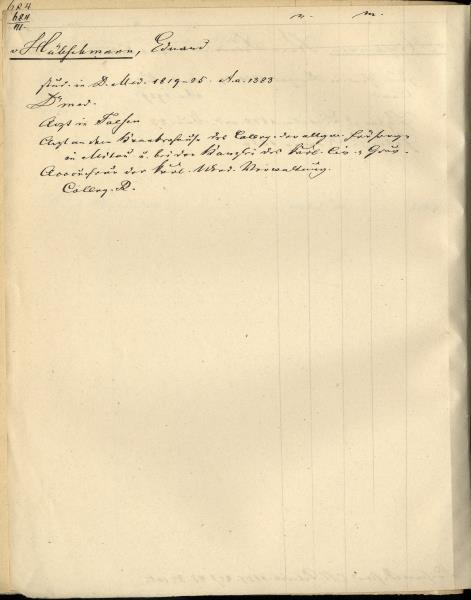 684
684
III.
n. m.
v. Hübschmann, Eduard
stud. in D. Med. 1819-25. A.a. 1383
Dr med.
Arzt in Talsen
Arzt an dem Krankenhause des Colleg. der allgem. Fürsorge
in Mitau u. bei der Kanzlei des Kurl. Civ.-Gouv.
Accoucheur der Kurl. Med. Verwaltung.
Colleg. R.